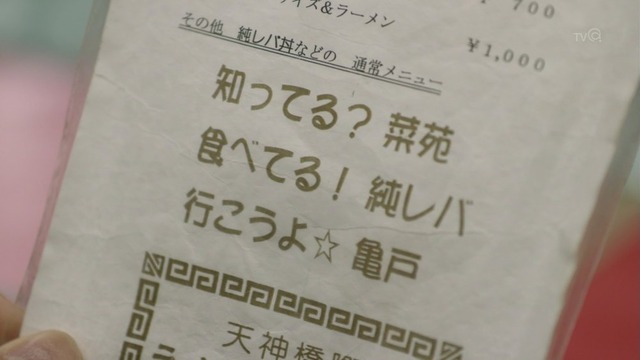 イズ&ラーメン
700
¥1,000
その他 純レバ丼などの 通常メニュー
知ってる？ 菜苑
食べてる！ 純レバ
行こうよ☆ 亀戸
天神橋
TVQ